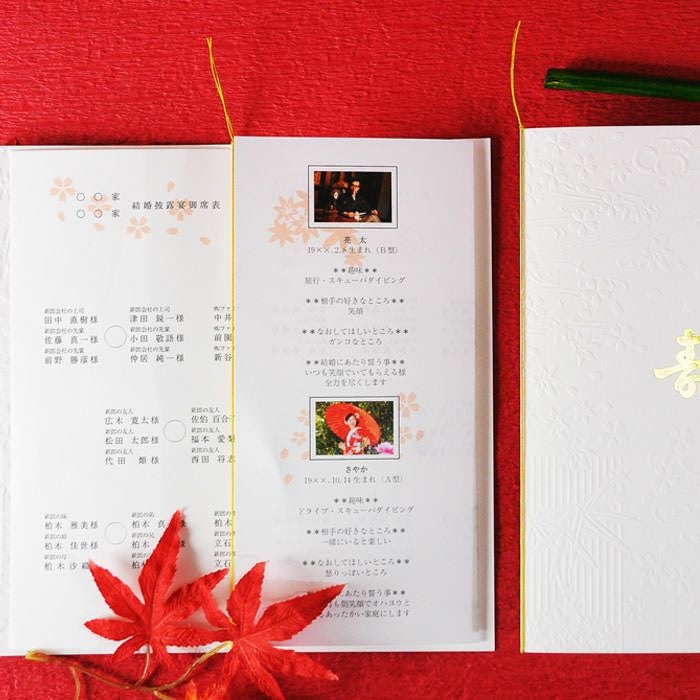 〇 〇 家
〇 〇 家
結婚披露宴御席表
新郎会社の上司
田中 直樹様
新郎会社の先輩
佐藤 真一様
新郎会社の先輩
前野 勝彦様
新郎会社の上司
津田 鋭一様
新郎会社の先輩
小田 敬語様
新郎会社の先輩
仲居 純一様
中井
前園
新谷
新郎の友人
広木 寛太様
新郎の友人
松田 太郎様
新郎の友人
代田 類様
新郎の友人
佐伯 百合子
新郎の友人
福本 愛
新郎の友人
西田 将志
柏木 雅美様
柏木 佳世様
柏木 沙
柏木 真
柏木
柏木
柏木
立石
立石
亮 太
19××.2.8 生まれ（B型）
＊＊趣味＊＊
旅行・スキューバダイビング
＊＊相手の好きなところ＊＊
笑顔
＊＊なおしてほしいところ＊＊
ガンコなところ
＊＊結婚にあたり誓う事＊＊
いつも笑顔でいてもらえる様
全力を尽くします
さやか
19××.10.14 生まれ（A型）
＊＊趣味＊＊
ドライブ・スキューバダイビング
＊＊相手の好きなところ＊＊
一緒にいると楽しい
＊＊なおしてほしいところ＊＊
怒りっぽいところ
にあたり誓う事＊＊
も朝笑顔でオハヨウと
あったかい家庭にします